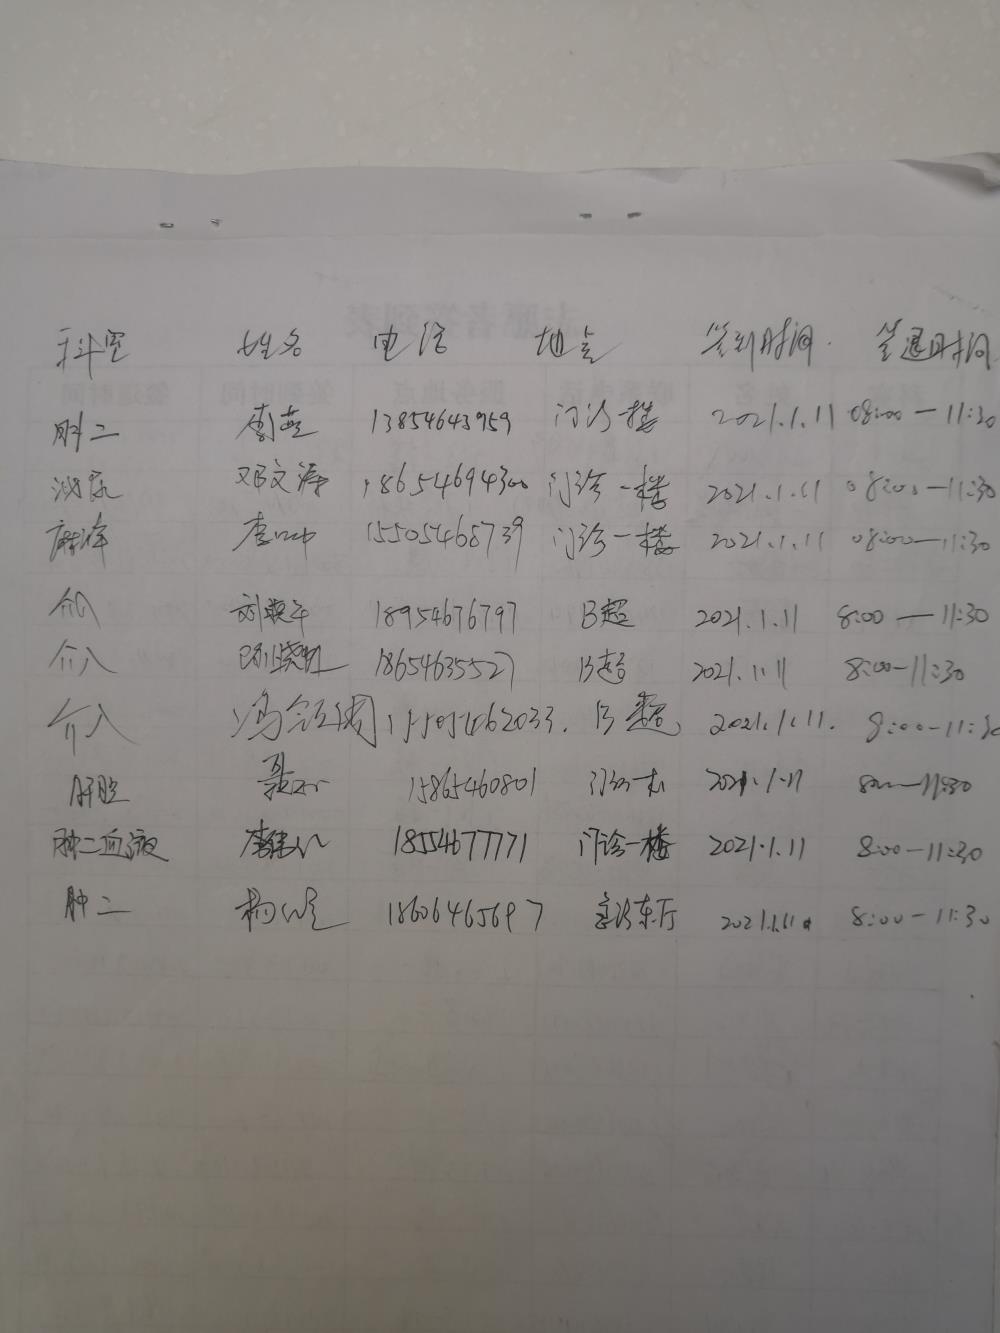 科室 姓名 电话 地点 签到时间 签退时间
肿二 李燕 13854643959 门诊一楼 2021.1.11 08:00—11:30
泌尿 邓文涛 18654694300 门诊一楼 2021.1.11 08:00—11:30
麻醉 李 15505468739 门诊一楼 2021.1.11 08:00—11:30
介入 刘 18954676797 B超 2021.1.11 8:00—11:30
介入 18654635527 B超 2021.1.11 8:00—11:30
介入 冯 B超 2021.1.11. 8:00-11:30
肝胆 聂 15865460801 2021.1.11 11:30
肿二血液 李 18554677771 门诊一楼 2021.1.11 8:00-11:30
肿二 杨 18606465697 东厅 2021.1.11 8:00-11:30